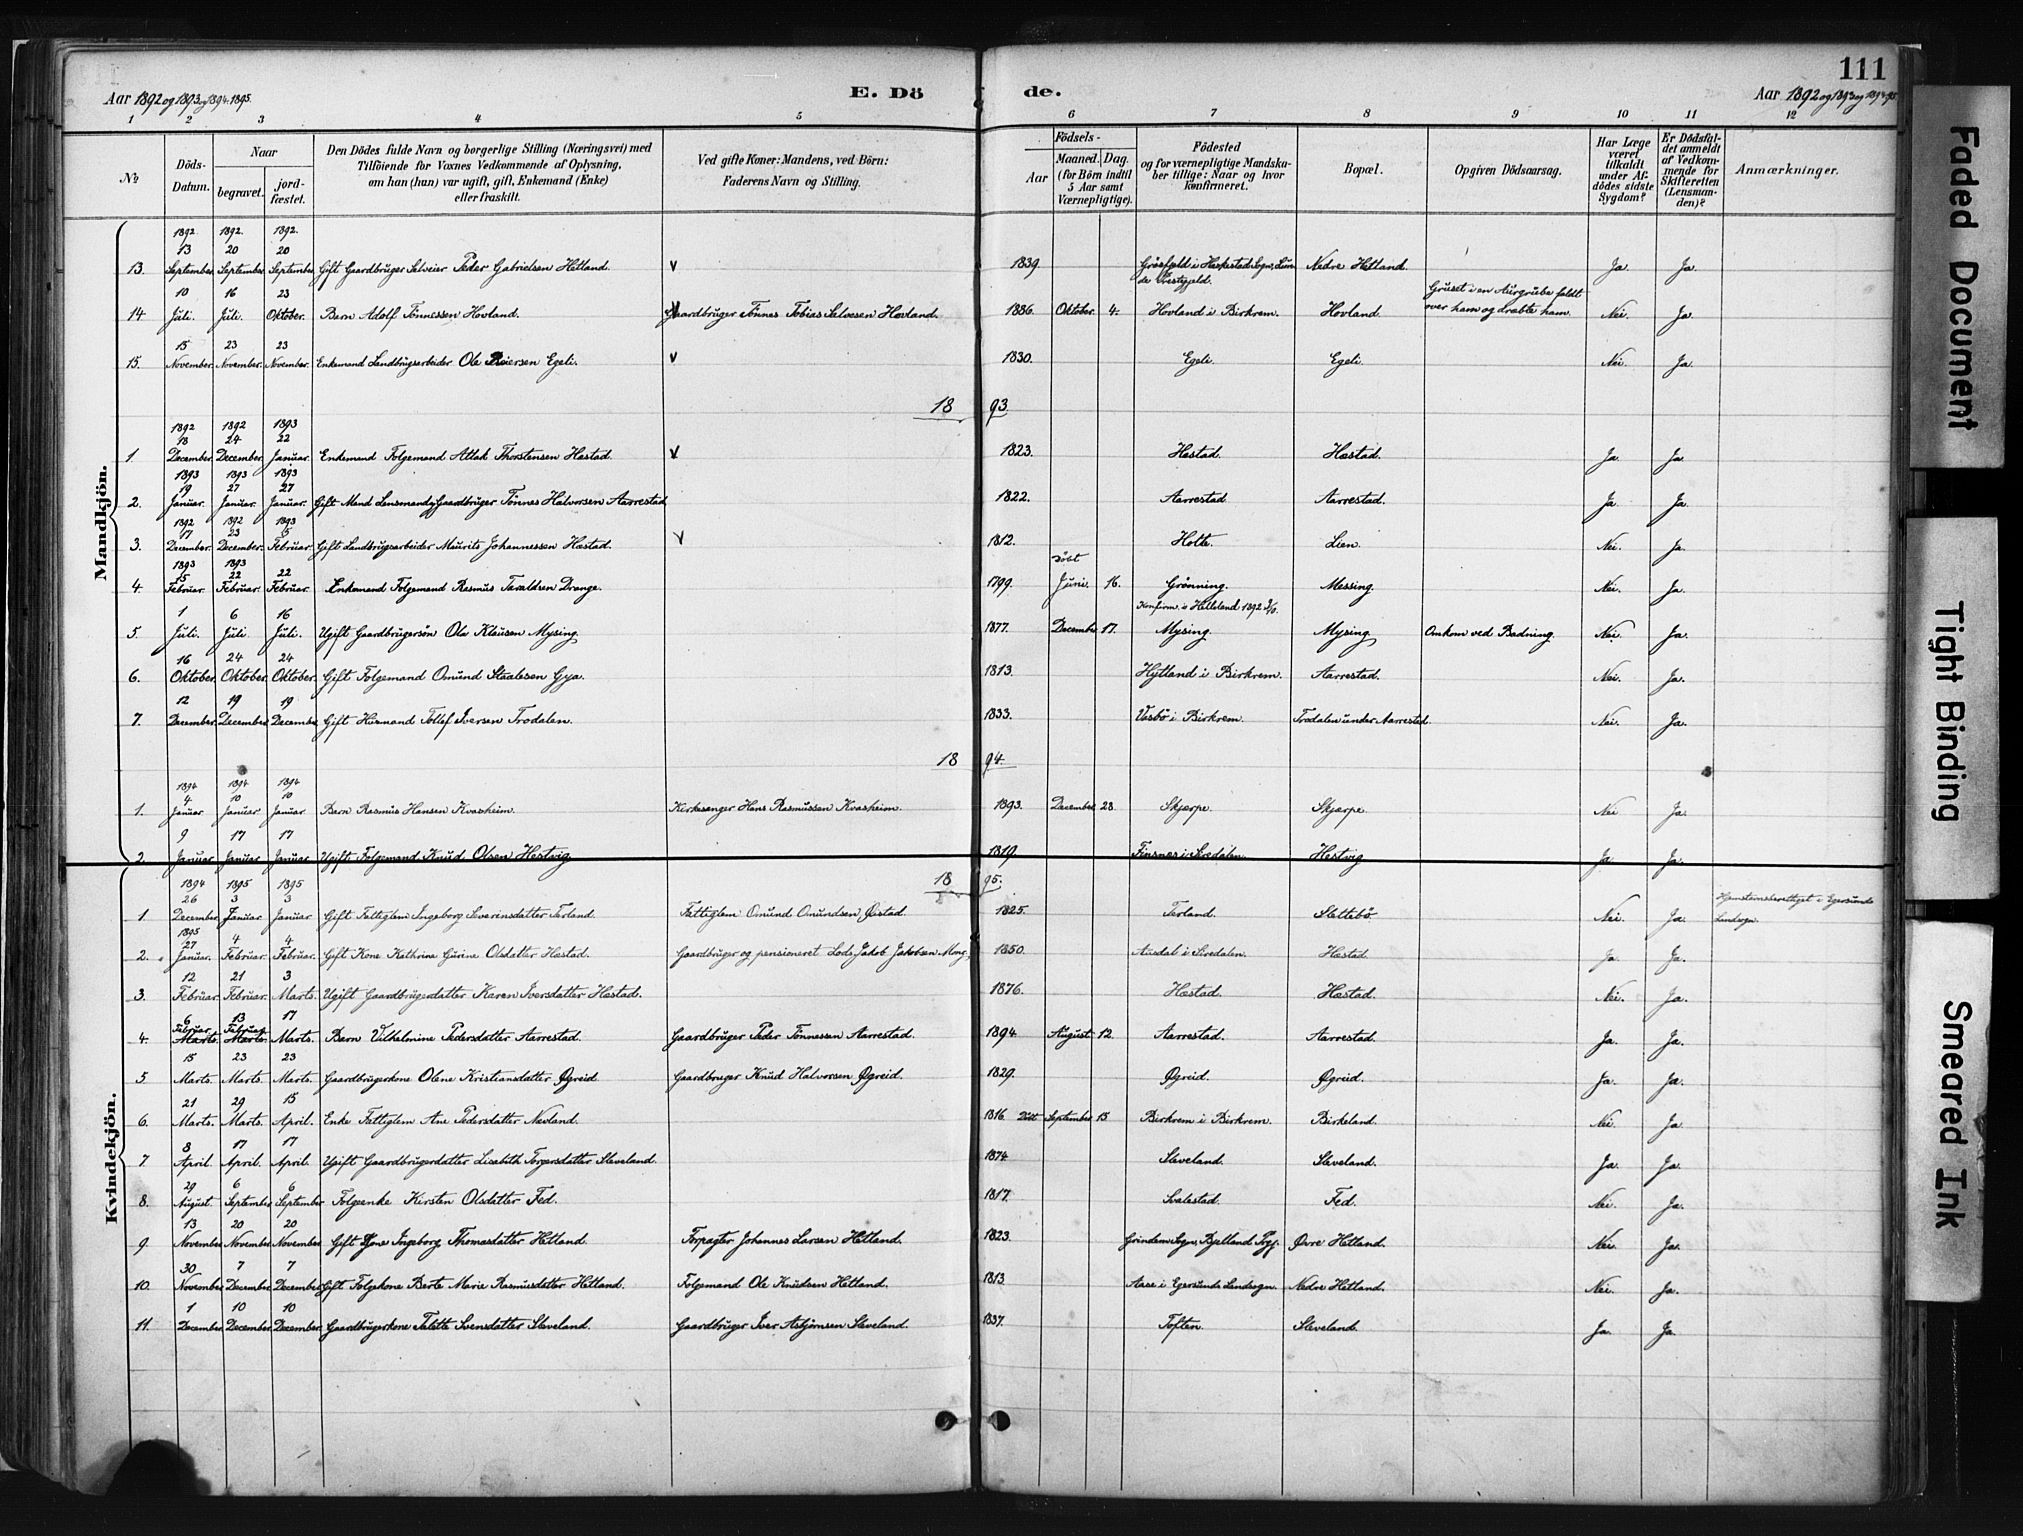 111
Aar 1892 og 1893 og 1894. 1895.
E. Dö de.
Aar 1892 og 1893 og 1894 95.
1 2 3 4 5 6 7 8 9 10 11 12
No
Döds-Datum.
Naar
begravet.
jord-fæstet.
Den Dödes fulde Navn og borgerlige Stilling (Næringsvei) med
Tilföiende for Voxnes Vedkommende af Oplysning,
om han (hun) var ugift, gift, Enkemand (Enke)
eller fraskilt.
Ved gifte Koner: Mandens, ved Börn:
Faderens Navn og Stilling.
Födsels-
Aar
Maaned. Dag.
(for Börn indtil
5 Aar samt
Værnepligtige).
Födested
og for værnepligtige Mandska-
ber tillige: Naar og hvor
konfirmeret.
Bopæl.
Opgiven Dödsaarsag.
Har Læge
været
tilkaldt
under Af-
dödes sidste
Sygdom?
Er Dödsfal-
det anmeldt
af Vedkom-
mende for
Skifteretten
(Lensman-
den)?
Anmærkninger.
Mandkjön.
1892 1892 1892
13 20 20
13. September. September. September. Gift Gaardbruger Selveier Peder Gabrielsen Hetland. V 1839. Heskestad Sogn, Lun-de Prestegjeld. Nedre Hetland. Ja. Ja.
10 16 23
14 Juli. Juli. Oktober. Barn Adolf Tönnessen Hovland. Gaardbruger Tönnes Tobias Salvesen Hovland. 1886. Oktober. 4. Hovland i Birkrem. Hovland. Gruset i en Aurgrube faldt over ham og dræbte ham. Nei. Ja.
15 23 23
15. November. November. November. Enkemand Landbrugsarbeider Ole Reiersen Egeli. V 1830. Egeli. Egeli. Nei. Ja.
18 93.
1892 1892 1893
18 24 22
1. December. December. Januar. Enkemand Folgemand Atlak Thorstensen Hæstad. V 1823. Hæstad. Hæstad. Ja. Ja
1893 1893 1893
19 27 27
2. Januar. Januar. Januar. Gift Mand Lensmand og Gaardbruger Tönnes Halvorsen Aarrestad 1822. Aarrestad Aarrestad. Ja Ja.
1892 1892 1893
17 23 5
3. December. December. Februar. Gift Landbrugsarbeider Maurits Johannessen Hæstad. V 1812. Holte. Lien. Nei. Ja.
1893 1893
15 22 22
4. Februar. Februar. Februar. Enkemand Folgemand Rasmus Taraldsen Drange. 1799. döbt Juni. 16. Grönning. Messing. Nei. Ja.
1 6 16
5. Juli. Juli. Juli. Ugift Gaardbrugersön Ole Klausen Mysing. 1877. December. 17. Konfirm. i Helleland 1892 Mysing. Mysing. Omkom ved Badning. Nei. Ja.
16 24 24
6. Oktober. Oktober. Oktober. Gift Folgemand Omund Staalesen Gya. 1813. Hytland i Birkrem. Aarrestad. Nei. Ja.
12 19 19
7. December. December. December. Gift Husmand Tollef Iversen Trodalen. 1833. Vasbö i Birkrem. Trodalen under Aarrestad Nei. Ja.
18 94.
1894 1894 1894
4 10 10
1. Januar Januar Januar Barn Rasmus Hansen Kvasheim. Kirkesanger Hans Rasmussen Kvasheim. 1893. December 28. Skjærpe. Skjærpe. Nei Ja.
9 17 17
2. Januar Januar Januar. Ugift Folgemand Knud Olsen Hestvig 1819. Finsnes i Siredalen. Hestvig Ja. Ja.
Kvindekjön.
18 95.
1894 1895 1895
26 3 3
1. December. Januar Januar Gift Fattiglem Ingeborg Severinsdatter Terland. Fattiglem Omund Omundsen Öistad. 1825. Terland. Slettebö. Nei. Ja. Hjemstedsberettiget i Egersunds Landsogn.
1895
27 4 4
2. Januar. Februar. Februar. Gift Kone Kathrine Gurine Olsdatter Hæstad. Gaardbruger og pensioneret Lods Jakob Jakobsen Mong. 1850. Ausdal i Siredalen. Hæstad. Ja. Ja.
12 21 3
3. Februar. Februar. Marts. Ugift Gaardbrugerdatter Karen Iversdatter Hæstad. 1876. Hæstad. Hæstad. Nei. Ja.
6 13 17
4. Februar Marts. Februar Marts. Marts. Barn Vilhelmine Pedersdatter Aarrestad. Gaardbruger Peder Tönnessen Aarrestad. 1894. August. 12. Aarrestad. Aarrestad. Ja. Ja.
15 23 23
5 Marts. Marts. Marts. Gaardbrugerkone Olene Kristiansdatter Øgreid Gaardbruger Knud Halvorsen Øgreid. 1829. Øgreid. Øgreid. Ja. Ja.
21 29 15
6. Marts. Marts. April. Enke Fattiglem Ane Pedersdatter Nesland. 1816. Döbt September. 15 Birkrem i Birkrem. Birkeland. Nei. Ja
8 17 17
7 April. April. April. Ugift Gaardbrugerdatter Lisabeth Torgersdatter Sleveland. 1874. Sleveland. Sleveland. Ja. Ja.
29 6 6
8. August. September. September. Folgeenke Kirsten Olsdatter Fed. 1817. Svalestad. Fed. Nei. Ja.
13 20 20
9 November. November. November. Gift Kone Ingeborg Thomasdatter Hetland. Forpagter Johannes Larsen Hetland. 1823. Grindem Sogn, Bjelland Prgj. Øvre Hetland. Nei. Ja.
30 7 7
10. November. December. December. Gift Folgekone Berte Marie Rasmusdatter Hetland. Folgemand Ole Knudsen Hetland. 1813. Aase i Egersunds Landsogn. Nedre Hetland. Nei. Ja.
1 10 10
11. December. December. December. Gaardbrugerkone Talette Svensdatter Sleveland. Gaardbruger Iver Asbjörnsen Sleveland. 1837. Toften. Sleveland. Ja. Ja.
Faded Document
Tight Binding
Smeared Ink